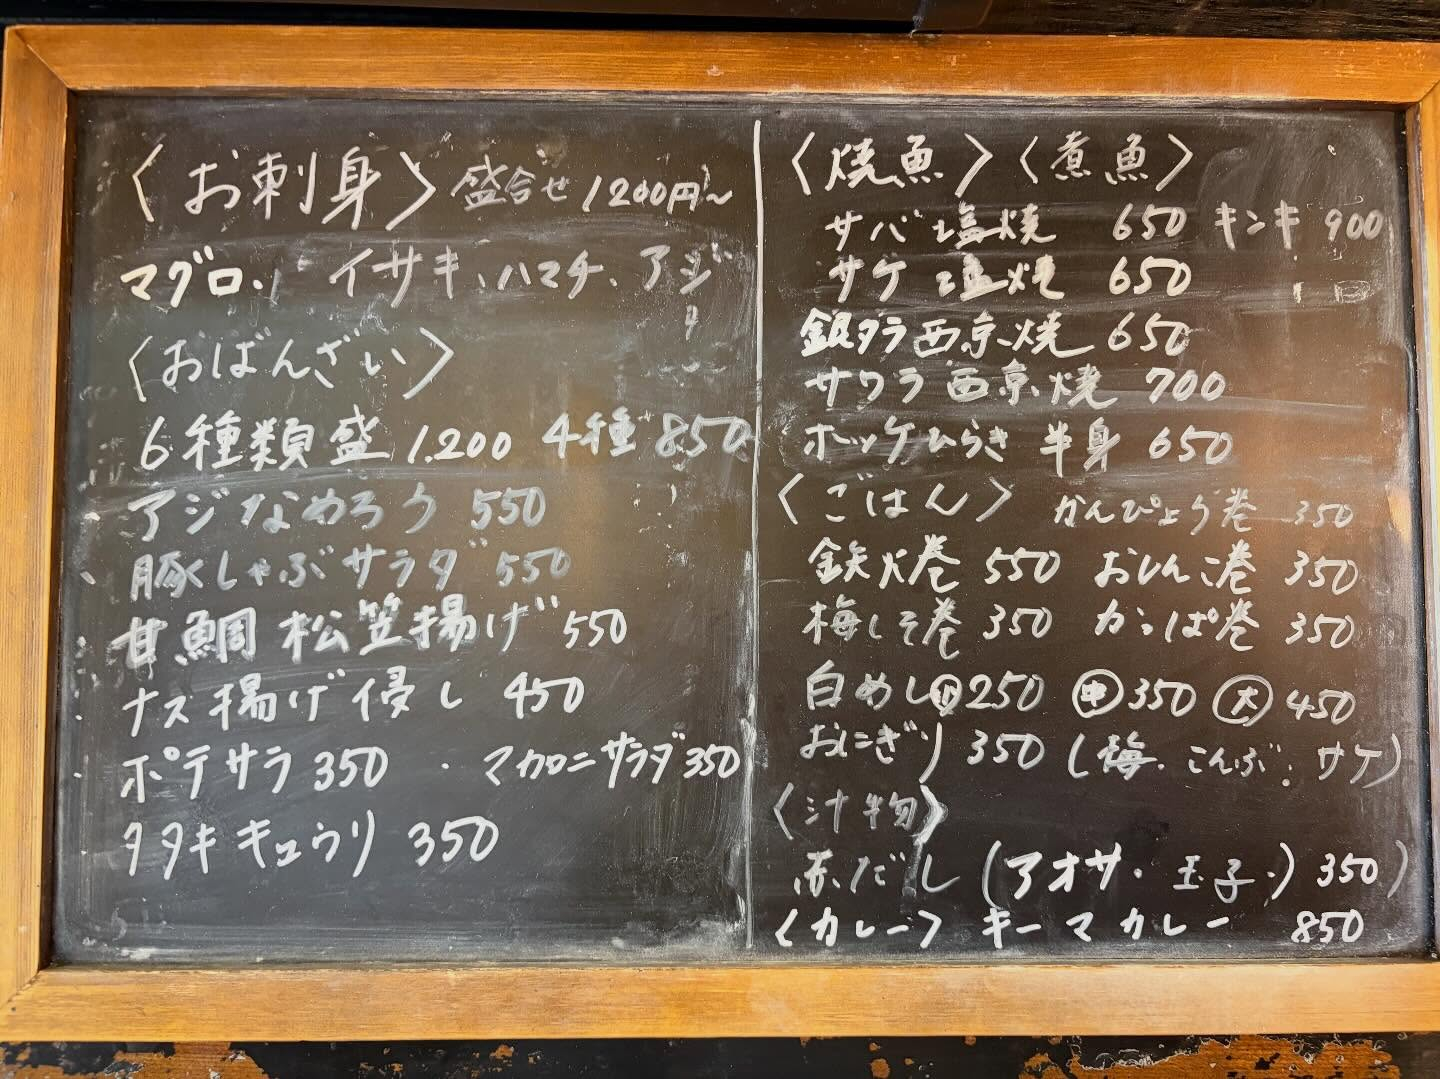 〈お刺身〉盛合せ 1200円〜
マグロ、イサキ、ハマチ、アジ
〈おばんざい〉
6種類盛 1.200 4種 850
アジなめろう 550
豚しゃぶサラダ 550
甘鯛 松笠揚げ 550
ナス揚げ侵し 450
ポテサラ 350 ・マカロニサラダ 350
タタキキュウリ 350
〈焼魚〉〈煮魚〉
サバ塩焼 650 キンキ 900
サケ塩焼 650
銀ダラ西京焼 650
サワラ西京焼 700
ホッケひらき 半身 650
〈ごはん〉 かんぴょう巻 350
鉄火巻 550 おしんこ巻 350
梅しそ巻 350 かっぱ巻 350
白めし小250 中350 大450
おにぎり 350 (梅・こんぶ・サケ)
〈汁物〉
赤だし (アオサ・玉子・) 350)
〈カレー〉 キーマカレー 850